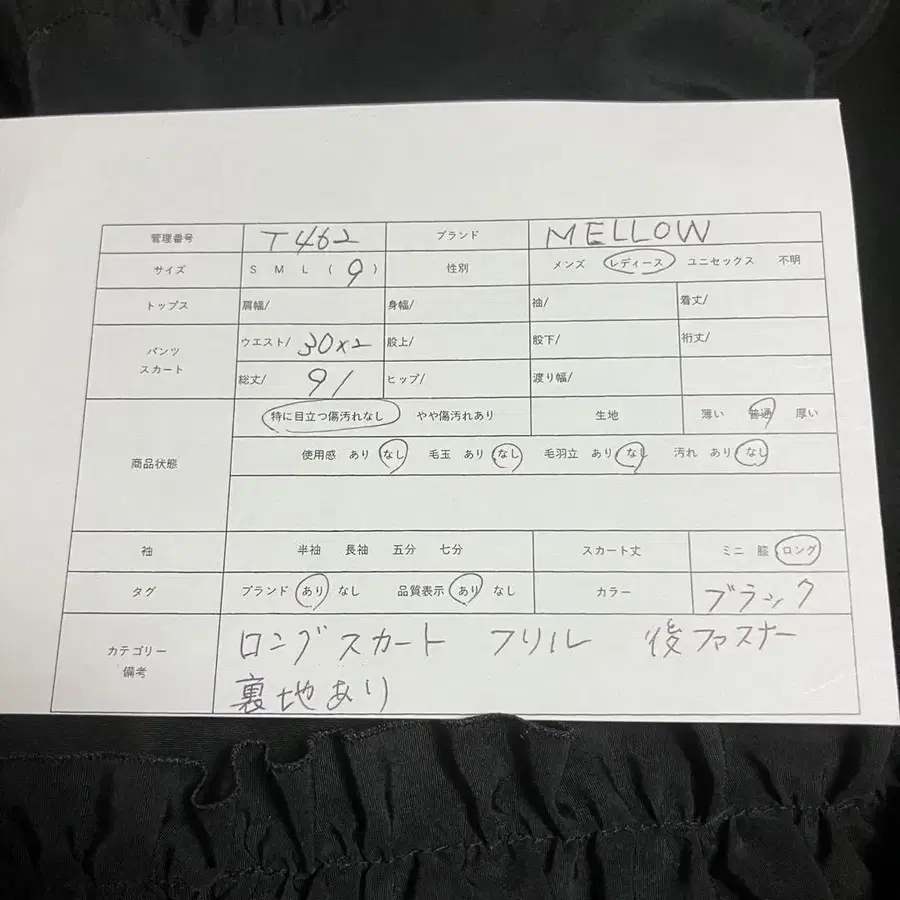 管理番号 T462 ブランド MELLOW
サイズ S M L ( 9 ) 性別 メンズ レディース ユニセックス 不明
トップス 肩幅/ 身幅/ 袖/ 着丈/
パンツ スカート ウエスト/ 30×2 股上/ 股下/ 裄丈/
総丈/ 91 ヒップ/ 渡り幅/
商品状態 特に目立つ傷汚れなし やや傷汚れあり 生地 薄い 普通 厚い
使用感 あり なし 毛玉 あり なし 毛羽立 あり なし 汚れ あり なし
袖 半袖 長袖 五分 七分 スカート丈 ミニ 膝 ロング
タグ ブランド あり なし 品質表示 あり なし カラー ブラック
カテゴリー 備考 ロングスカート フリル 後ファスナー
裏地あり